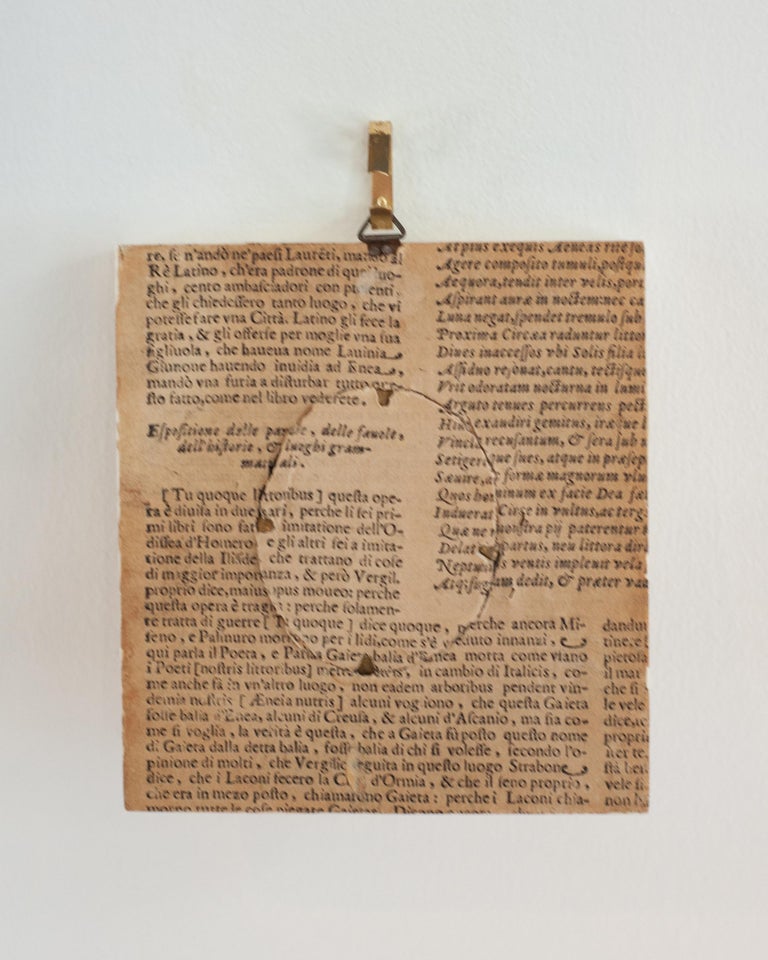 re, se n'andò ne'paesi Lauréti, mandò al
Rè Latino, ch'era padrone di que' luo-
ghi, cento ambasciadori con presenti,
che gli chiedessero tanto luogo, che vi
potesse fare vna Città. Latino gli fece la
gratia, & gli offerse per moglie vna sua
figliuola, che haueua nome Lauinia
Giunone hauendo inuidia ad Enea
mandò vna furia a disturbar tutto
sto fatto, come nel libro vederete.
Espositione delle parole, delle fauole,
dell'historie, & luoghi gram-
maticali.
[Tu quoque littoribus] questa ope-
ra è diuisa in due pari, perche li sei pri-
mi libri sono fatti imitatione dell'O-
dissea d'Homero e gli altri sei a imita-
tione della Iliade che trattano di cose
di maggior importanza, & però Vergil.
proprio dice, maius opus moueo: perche
questa opera è tragica: perche solamen-
te tratta di guerre [Tu quoque] dice quoque, perche ancora Mi-
seno, e Palinuro morirono per i lidi, come s'è veduto innanzi.
qui parla il Poeta, e Parla Gaieta balia d'Enea morta come viano
i Poeti [nostris littoribus] in cambio di Italicis, co-
me anche fà in vn'altro luogo, non eadem arboribus pendent vin-
demia nostris [Æneia nutrix] alcuni vogliono, che questa Gaieta
fosse balia d'Enea, alcuni di Creusa, & alcuni d'Ascanio, ma sia co-
me si voglia, la verità è questa, che a Gaieta fù posto questo nome
di Gaieta dalla detta balia, fosse balia di chi si volesse, secondo l'o-
pinione di molti, che Vergilio seguita in questo luogo Strabone
dice, che i Laconi fecero la d'Ormia, & che il seno proprio,
che era in mezo posto, chiamarono Gaieta: perche i Laconi chia-
morno tutte le cose piegate Gaietas.
At pius exequis Aeneas rite
Agere composito tumuli, postqu
Aequora, tendit inter velis, port
Aspirant auræ in noctem: nec ca
Luna negat, spendet tremulo sub
Proxima Circæa raduntur littor
Diues inaccessos vbi Solis filia l
Assiduo resonat, cantu, tectisque
Vrit odoratam nocturna in lumi
Arguto tenues percurrens pect
Hinc exaudiri gemitus, iræque l
Vincla recusantum, & sera sub n
Setigerique sues, atque in præsep
Sæuire, ac formæ magnorum vlu
Quos hominum ex facie Dea sæ
Induerat Circe in vultus, ac terg
Quæ ne monstra pij paterentur t
Delati portus, neu littora dir
Neptunus ventis impleuit vela
Atque fugam dedit, & præter va
dandu
tine, e
pietosa
il mar
che si
le vele
dice, c
propri
stà ben
vele si
non h